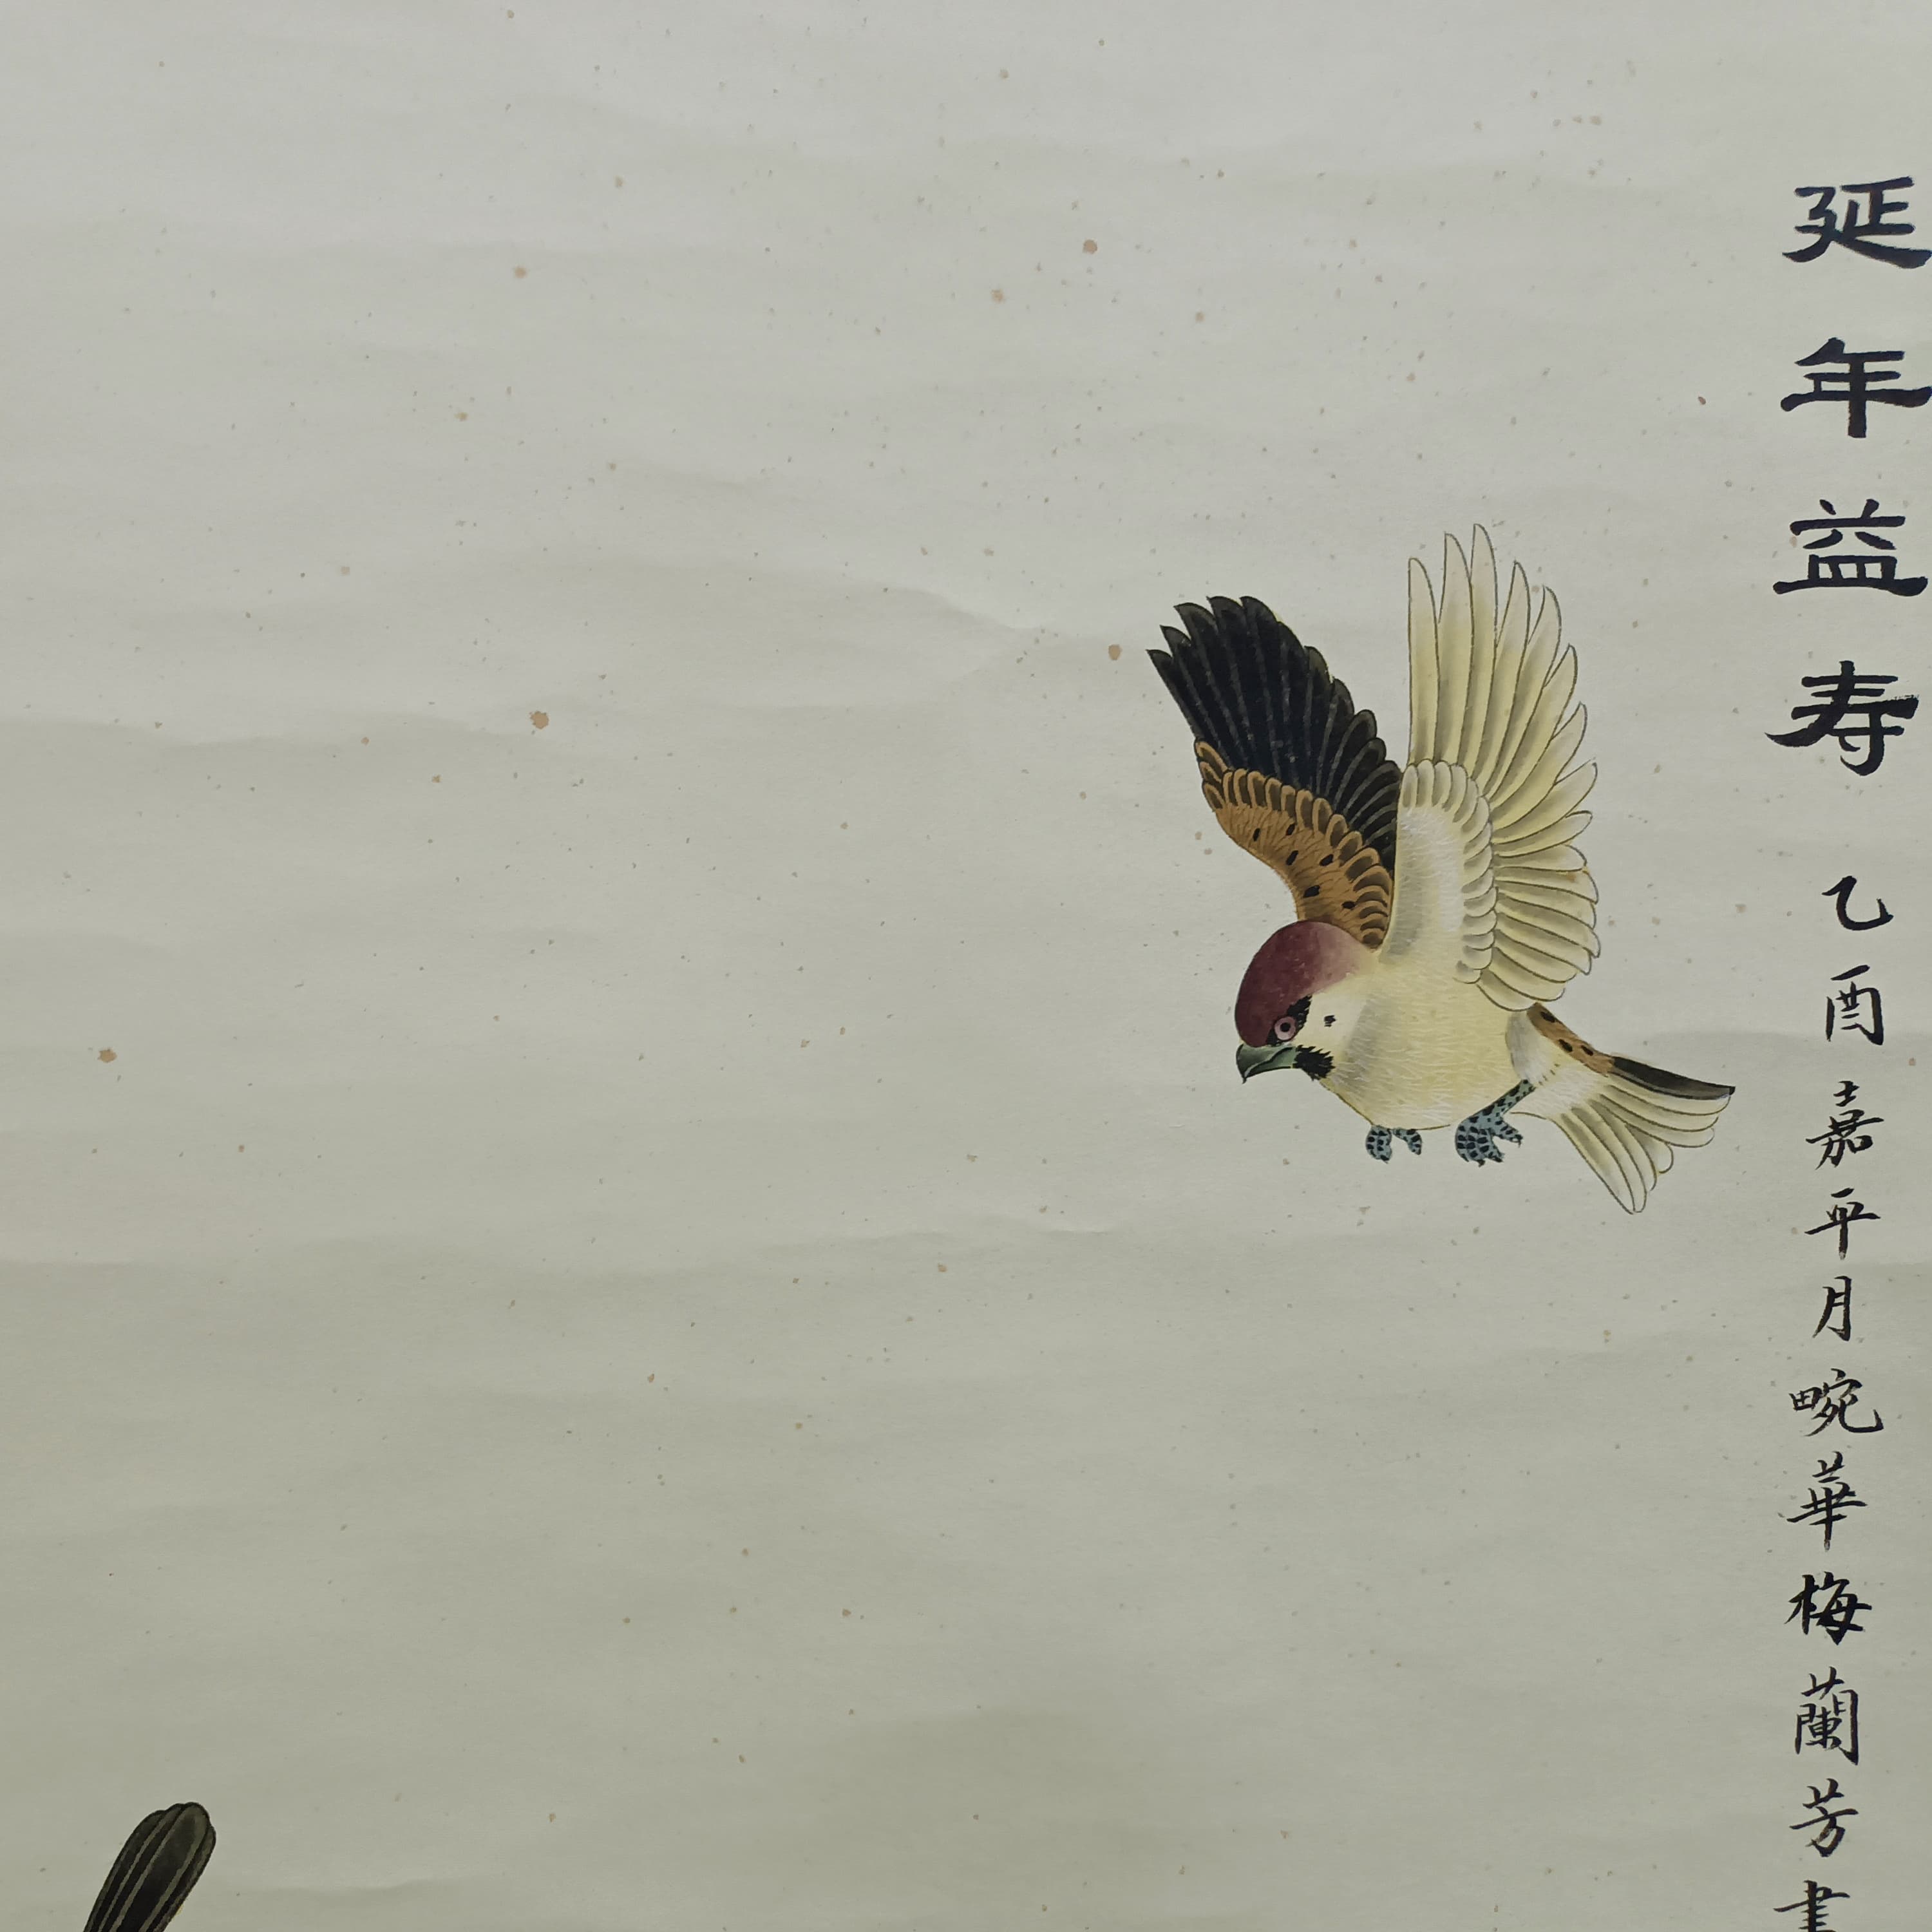 延年益寿 乙酉嘉平月畹華梅蘭芳書